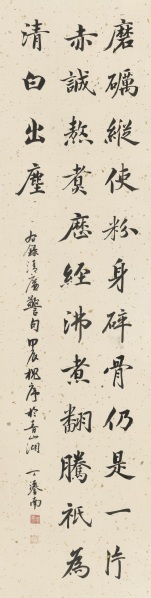 磨礪縱使粉身碎骨仍是一片
赤誠熬煑歷經沸煮翻騰祇為
清白出塵
右錄清廉警句甲辰槐序於青山湖丁琴南